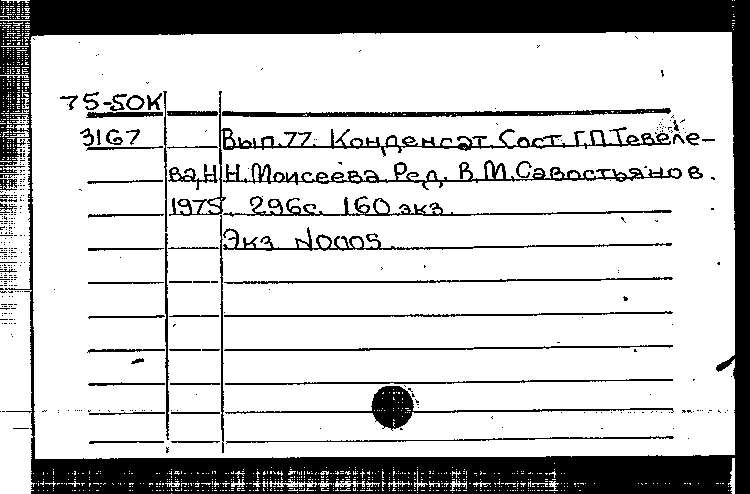 75-50К
3167 Вып.77. Конденсат. Сост. Г.П.Тевеле-
ва, Н.Н.Моисеева. Ред. В.М.Савостьянов.
1975. 296с. 160 экз.
Экз N0005.